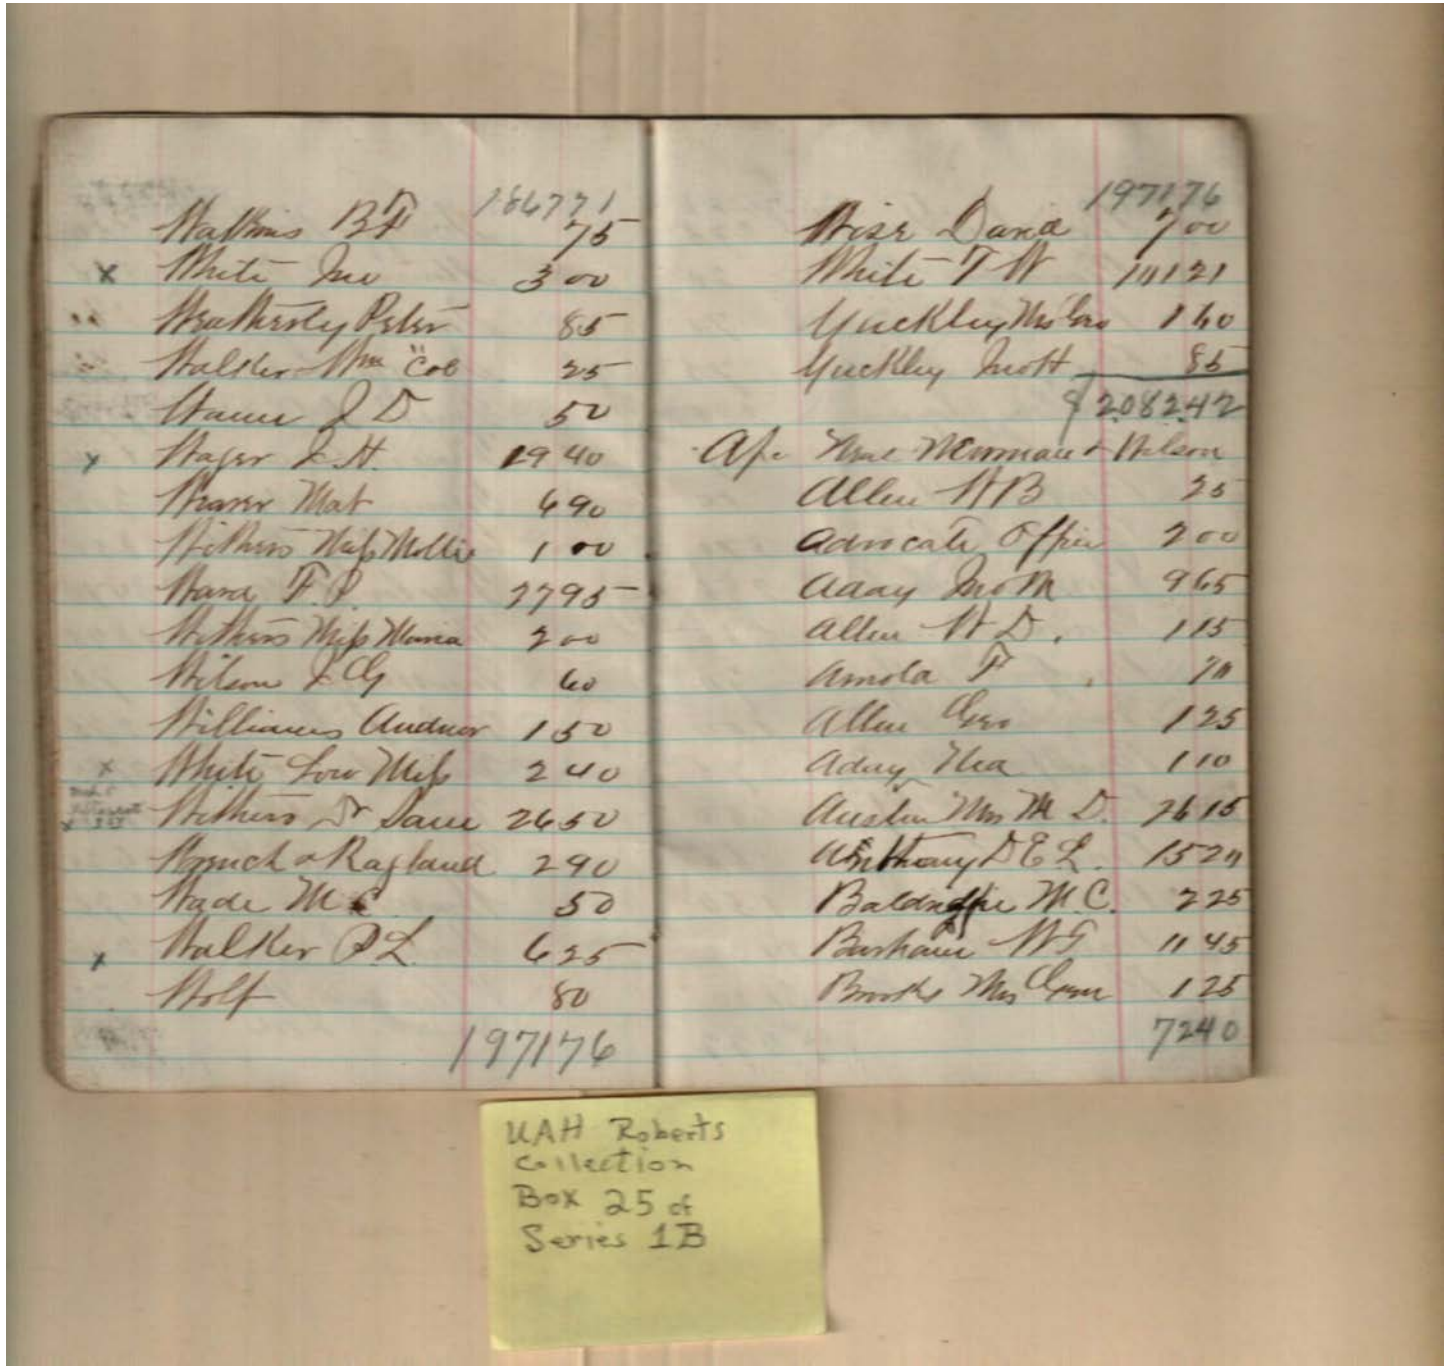 186771
Watkins B F 75
x White Jno 3 00
Weatherly Peter 85
Walker Wm "Col 25
J D 50
x Wager J H. 19 40
Weaver Mat 6 90
Withers Miss Mollie 1 00
Ward F. P. 27 95
Withers Miss Maria 2 00
Wilson J G 60
Williams 1 50
x White Lou Miss 2 40
x Withers Dr Dave 26 50
& Ragland 2 90
Wade M C 50
x Walker P. L. 6 25
Wolf 80
197176
197176
Wise David 7 00
White T W 101 21
Yuckley Mrs Geo 1 60
Yuckley Jno H 85
$ 2082.42
A/c Newman & Wilson
Allen W B 25
Advocate Office 2 00
Aday Jno M 9 65
Allen W D. 1 15
Arnold F 70
Allen Geo 1 25
Aday 1 10
Austin Mrs M D. 26 15
Anthony D E L. 15 20
Baldridge M. C. 2 25
Barham W G 11 45
Brooks Mrs 1 25
7240
UAH Roberts
Collection
Box 25 of
Series 1B